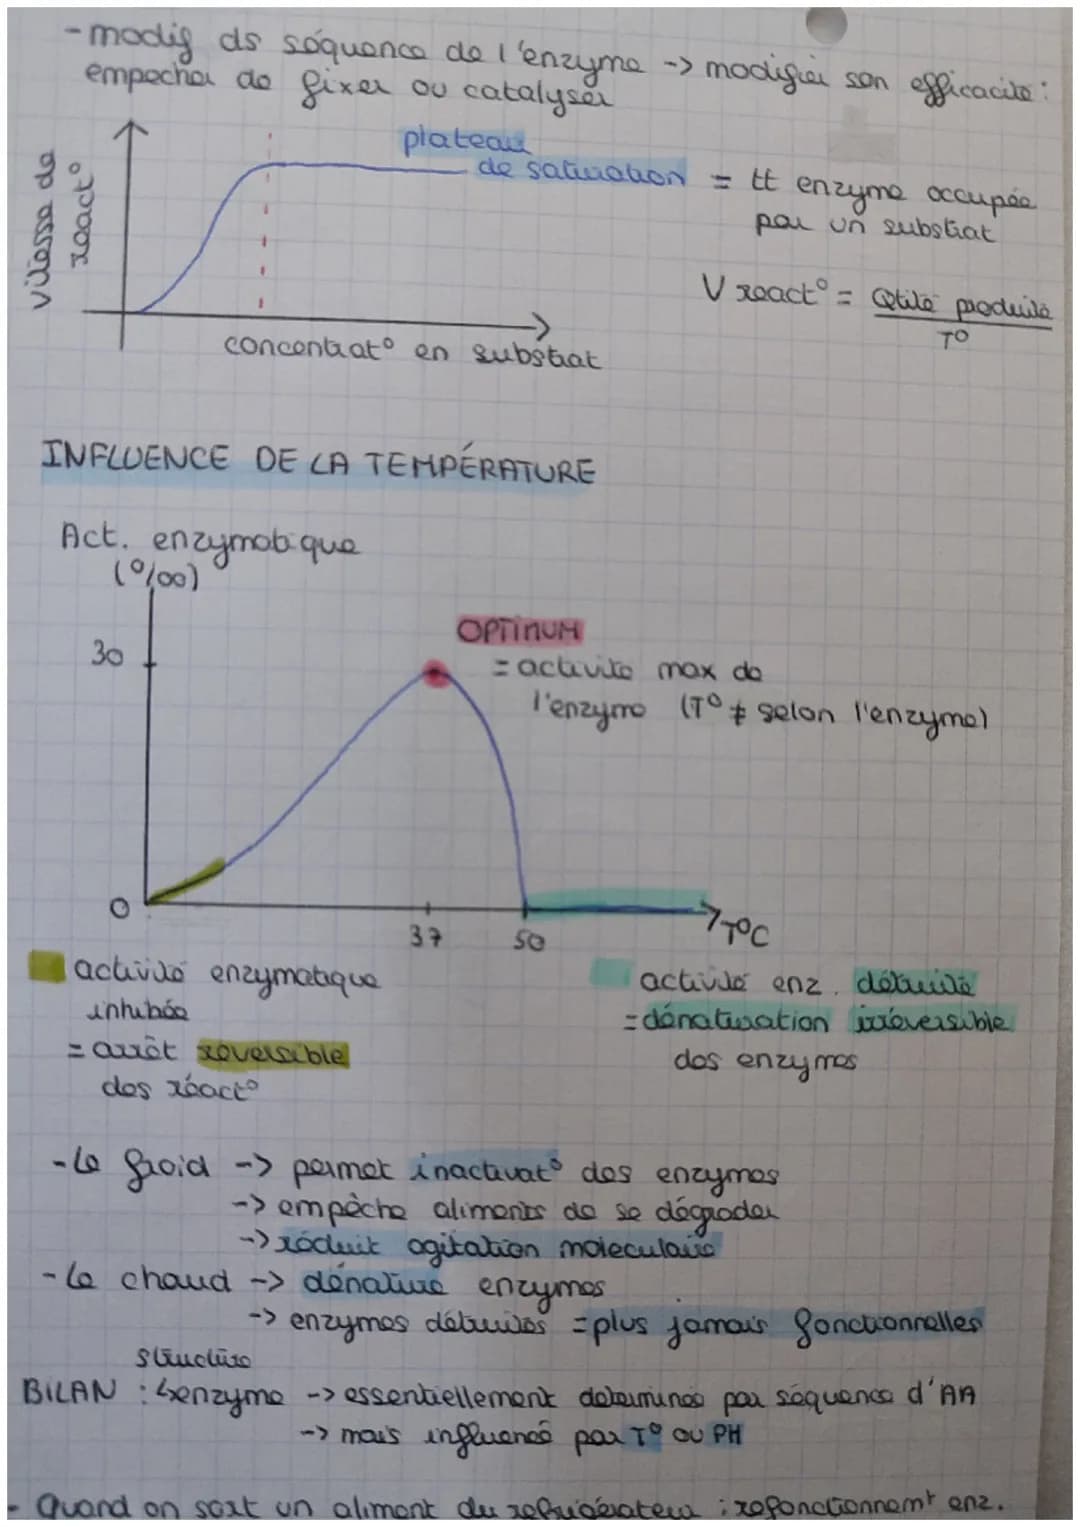 - modif ds séquence de l'enzyme -> modifier son efficacité :
empecher de fixer ou catalyser
plateau
de saturation = tt enzyme occupée
par un substrat
vitesse de
react°
V react° = Qtité produite
T°
concentrat° en substrat
INFLUENCE DE LA TEMPÉRATURE
Act. enzymatique
(°/00)
30
OPTIMUM
= activité max de
l'enzyme (T° ≠ selon l'enzyme)
0
37
50
T°C
activité enzymatique
inhibée
= arrêt reversible
des réact°
activité enz. détruite
= dénaturation irréversible
des enzymes
- le froid -> permet inactivat° des enzymes
-> empèche aliments de se dégrader
-> réduit agitation moleculaire
- le chaud -> dénature enzymes
-> enzymes détruites = plus jamais fonctionnelles
structure
BILAN : enzyme -> essentiellement determinée par séquence d'AA
-> mais influencé par T° ou PH
- Quand on sort un aliment du refrigérateur : refonctionnemt enz.